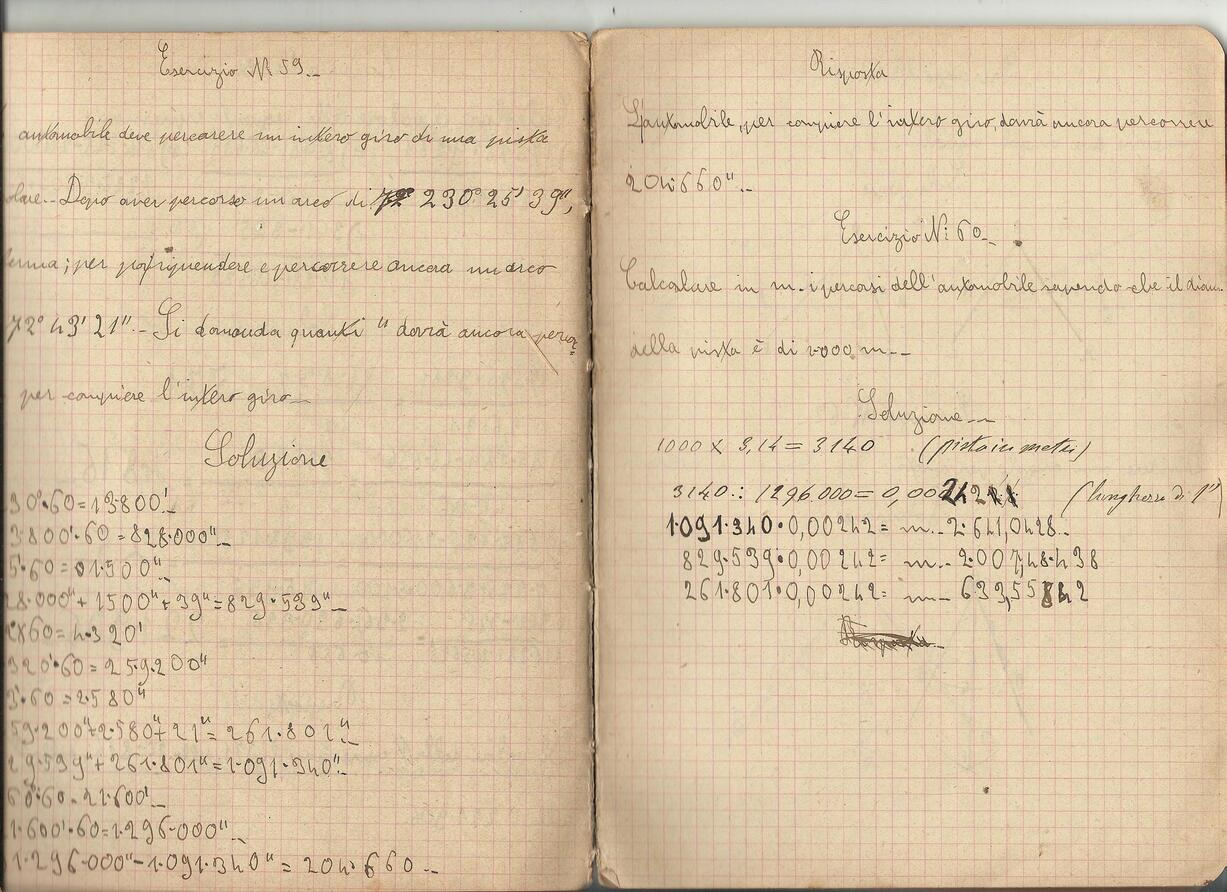 Esercizio N 59..
automobile deve percorere un intero giro di una pista
olare.. Dopo aver percorso un arco di 72° 230° 25' 39",
ferma; per poi riprendere e percorrere ancora un arco
72° 43' 21".- Si domanda quanti " dovrà ancora percor=
per compiere l'intero giro..
Soluzione
30°•60=13•800'..
3•800'•60=828•000"..
5'•60=01•500"..
28•000"+1500"+39"=829•539"..
2×60=4•320'
320'•60=259•200"
3'•60=2•580"
59•200"+2•580"+21"=261•801"..
29•539"+261•801"=1•091•340"..
60°•60=21•600'..
1•600'•60=1•296•000"..
1•296•000"-1•091•340"=204•660..
Risposta
L'automobile, per compiere l'intero giro, dovrà ancora percorrere
204•660"..
Esercizio N: 60..
Calcolare in m.. i percorsi dell'automobile sapendo che il diam..
della pista è di 1•000 m...
Soluzione...
1000 x 3,14 = 3140 (pista in metri)
3140 : 1296000 = 0,00242 (lunghezza di 1")
1•091•340•0,00242= m.. 2•641,0428..
829•539•0,00242= m.. 2•007,48438
261•801•0,00242= m.. 633,55842